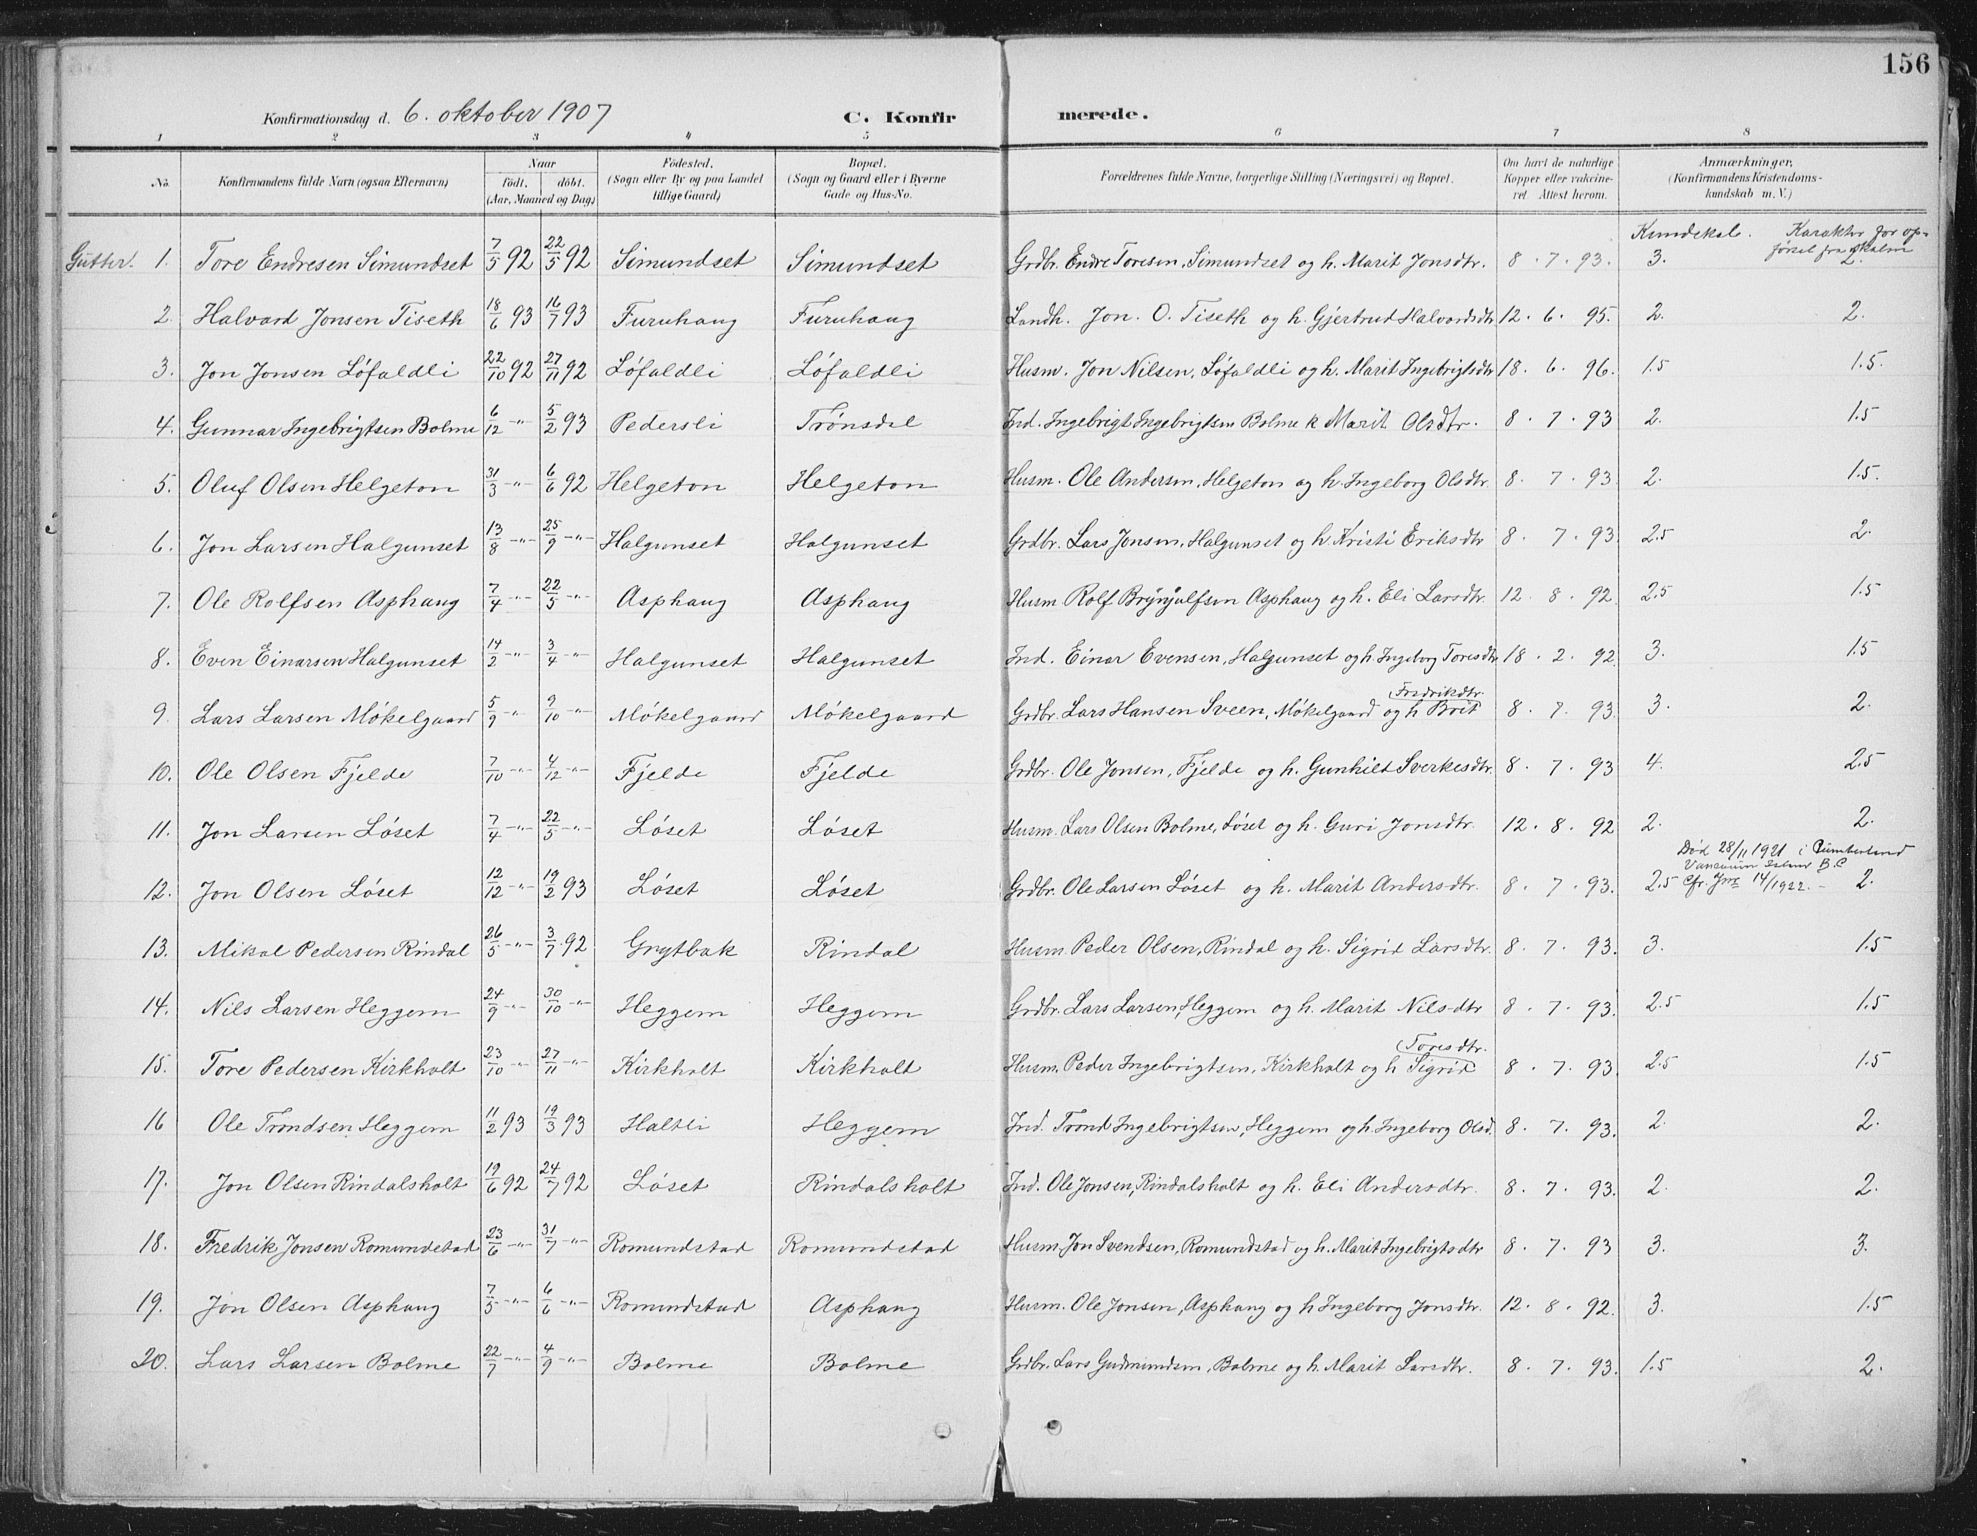 156
Konfirmationsdag d. 6. oktober 1907 C. Konfirmerede.
1 2 3 4 5 6 7 8
No. Konfirmandens fulde Navn (ogsaa Efternavn) Naar født. døbt. (Aar, Maaned og Dag) Fødested. (Sogn eller By og paa Landet tillige Gaard) Bopæl. (Sogn og Gaard eller i Byerne Gade og Hus-No. Forældrenes fulde Navne, borgerlige Stilling (Næringsvei) og Bopæl. Om havt de naturlige Kopper eller vakcineret. Attest herom. Anmærkninger, (Konfirmandens Kristendomskundskab m. V.)
Kundskab. Karakter for opførsel fra skolen
Gutter. 1. Tore Endresen Simundset 7/5 92 22/5 92 Simundset Simundset Grdbr. Endre Toresen, Simundset og h. Marit Jonsdtr. 8. 7. 93. 3. 2.
2. Halvard Jonsen Tiseth 18/6 93 16/7 93 Furuhaug Furuhaug Landh. Jon. O. Tiseth og h. Gjertrud Halvordsdtr 12. 6. 95. 2. 2.
3. Jon Jonsen Løfaldli 22/10 92 27/11 92 Løfaldli Løfaldli Husm. Jon Nilsen, Løfaldli og h. Marit Ingebrigtsdtr 18. 6. 96. 1.5 1.5.
4. Gunnar Ingebrigtsen Bolme 6/12 -"- 5/2 93 Pedersli Trønsdal Ind. Ingebrigt Ingebrigtsen Bolme k Marit Olsdtr. 8. 7. 93 2. 1.5
5. Oluf Olsen Helgeton 31/3 -"- 6/6 92 Helgeton Helgeton Husm. Ole Andersen, Helgeton og h. Ingeborg Olsdtr. 8. 7. 93. 2. 1.5.
6. Jon Larsen Halgunset 13/8 -"- 25/9 -"- Halgunset Halgunset Grdbr. Lars Jonsen, Halgunset og h. Kristi Eriksdtr 8. 7. 93. 2.5 2.
7. Ole Rolfsen Asphaug 7/4 -"- 22/5 -"- Asphaug Asphaug Husm Rolf Brynjulfsen Asphaug og h. Eli Larsdtr. 12. 8. 92. 2.5 1.5
8. Even Einarsen Halgunset 14/2 -"- 3/4 -"- Halgunset Halgunset Ind. Einar Evensen, Halgunset og h. Ingeborg Toresdtr 18. 2. 92. 3. 1.5
9. Lars Larsen Møkelgaard 5/9 -"- 9/10 -"- Møkelgaard Møkelgaard Grdbr. Lars Hansen Sveen, Møkelgaard og h Brit Fredriksdtr. 8. 7. 93. 3. 2.
10. Ole Olsen Fjelde 7/10 -"- 4/12 -"- Fjelde Fjelde Grdbr. Ole Jonsen, Fjelde og h. Gunhild Sverkesdtr. 8. 7. 93 4. 2.5
11. Jon Larsen Løset 7/4 -"- 22/5 -"- Løset Løset Husm. Lars Olsen Bolme, Løset og h. Guri Jonsdtr. 12. 8. 92 2. 2.
Død 28/11 1921 i Cumberland
B.C
12. Jon Olsen Løset 12/12 -"- 19/2 93 Løset Løset Grdbr. Ole Larsen Løset og h. Marit Andersdtr. 8. 7. 93. 2.5 Cfr. 14/1922. - 2.
13. Mikal Pedersen Rindal 26/5 -"- 3/7 92 Grytbak Rindal Husm. Peder Olsen, Rindal og h. Sigrid Larsdtr. 8. 7. 93. 3. 1.5
14. Nils Larsen Heggem 24/9 -"- 30/10 -"- Heggem Heggem Grdbr. Lars Larsen, Heggem og h. Marit Nilsdtr 8. 7. 93. 2.5 1.5
15. Tore Pedersen Kirkholt 23/10 -"- 27/11 -"- Kirkholt Kirkholt Husm. Peder Ingebrigtsen, Kirkholt og h Sigrid Toresdtr. 8. 7. 93. 2.5 1.5
16 Ole Trondsen Heggem 11/2 93 19/3 93 Haltli Heggem Ind. Trond Ingebrigtsen, Heggem og h. Ingeborg Olsd. 8. 7. 93. 2. 2.
17. Jon Olsen Rindalsholt 19/6 92 24/7 92 Løset Rindalsholt Ind. Ole Jonsen, Rindalsholt og h. Eli Andersdtr. 8. 7. 93. 2. 2.
18. Fredrik Jonsen Romundstad 23/6 -"- 31/7 -"- Romundstad Romundstad Husm. Jon Svendsen, Romundstad og h. Marit Ingebrigtsdtr 8. 7. 93 3. 3.
19. Jon Olsen Asphaug 7/5 -"- 6/6 -"- Romundstad Asphaug Husm. Ole Jonsen, Asphaug og h Ingeborg Jonsdtr. 12. 8. 92. 3. 1.5
20. Lars Larsen Bolme 22/7 -"- 4/9 -"- Bolme Bolme Grdbr. Lars Gudmundsen, Bolme og h. Marit Larsdtr. 8. 7. 93. 1.5 2.